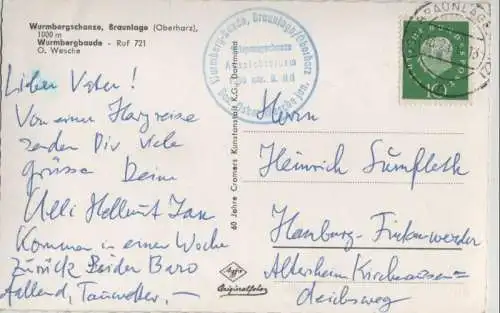 Wurmbergschanze, Braunlage (Oberharz),
1000 m
Wurmbergbaude - Ruf 721
O. Wesche
Lieber Vater!
Von einer Harzreise
senden Dir viele
Grüsse Deine
Ulli Hellmut Jan
Kommen in einer Woche
zurück. Leider Baro
fallend, Tauwetter.-
60 Jahre Cramers Kunstanstalt K.G., Dortmund
Wurmberg-Baude, Braunlage/Oberharz
Bes. Oskar Wesche jun.
Agfa
Originalfoto
BRAUNLAGE
DEUTSCHE BUNDESPOST
10
Herrn
Heinrich Sumfleth
Hamburg-Finkenwerder
Altersheim Kirchhausen=
deichsweg